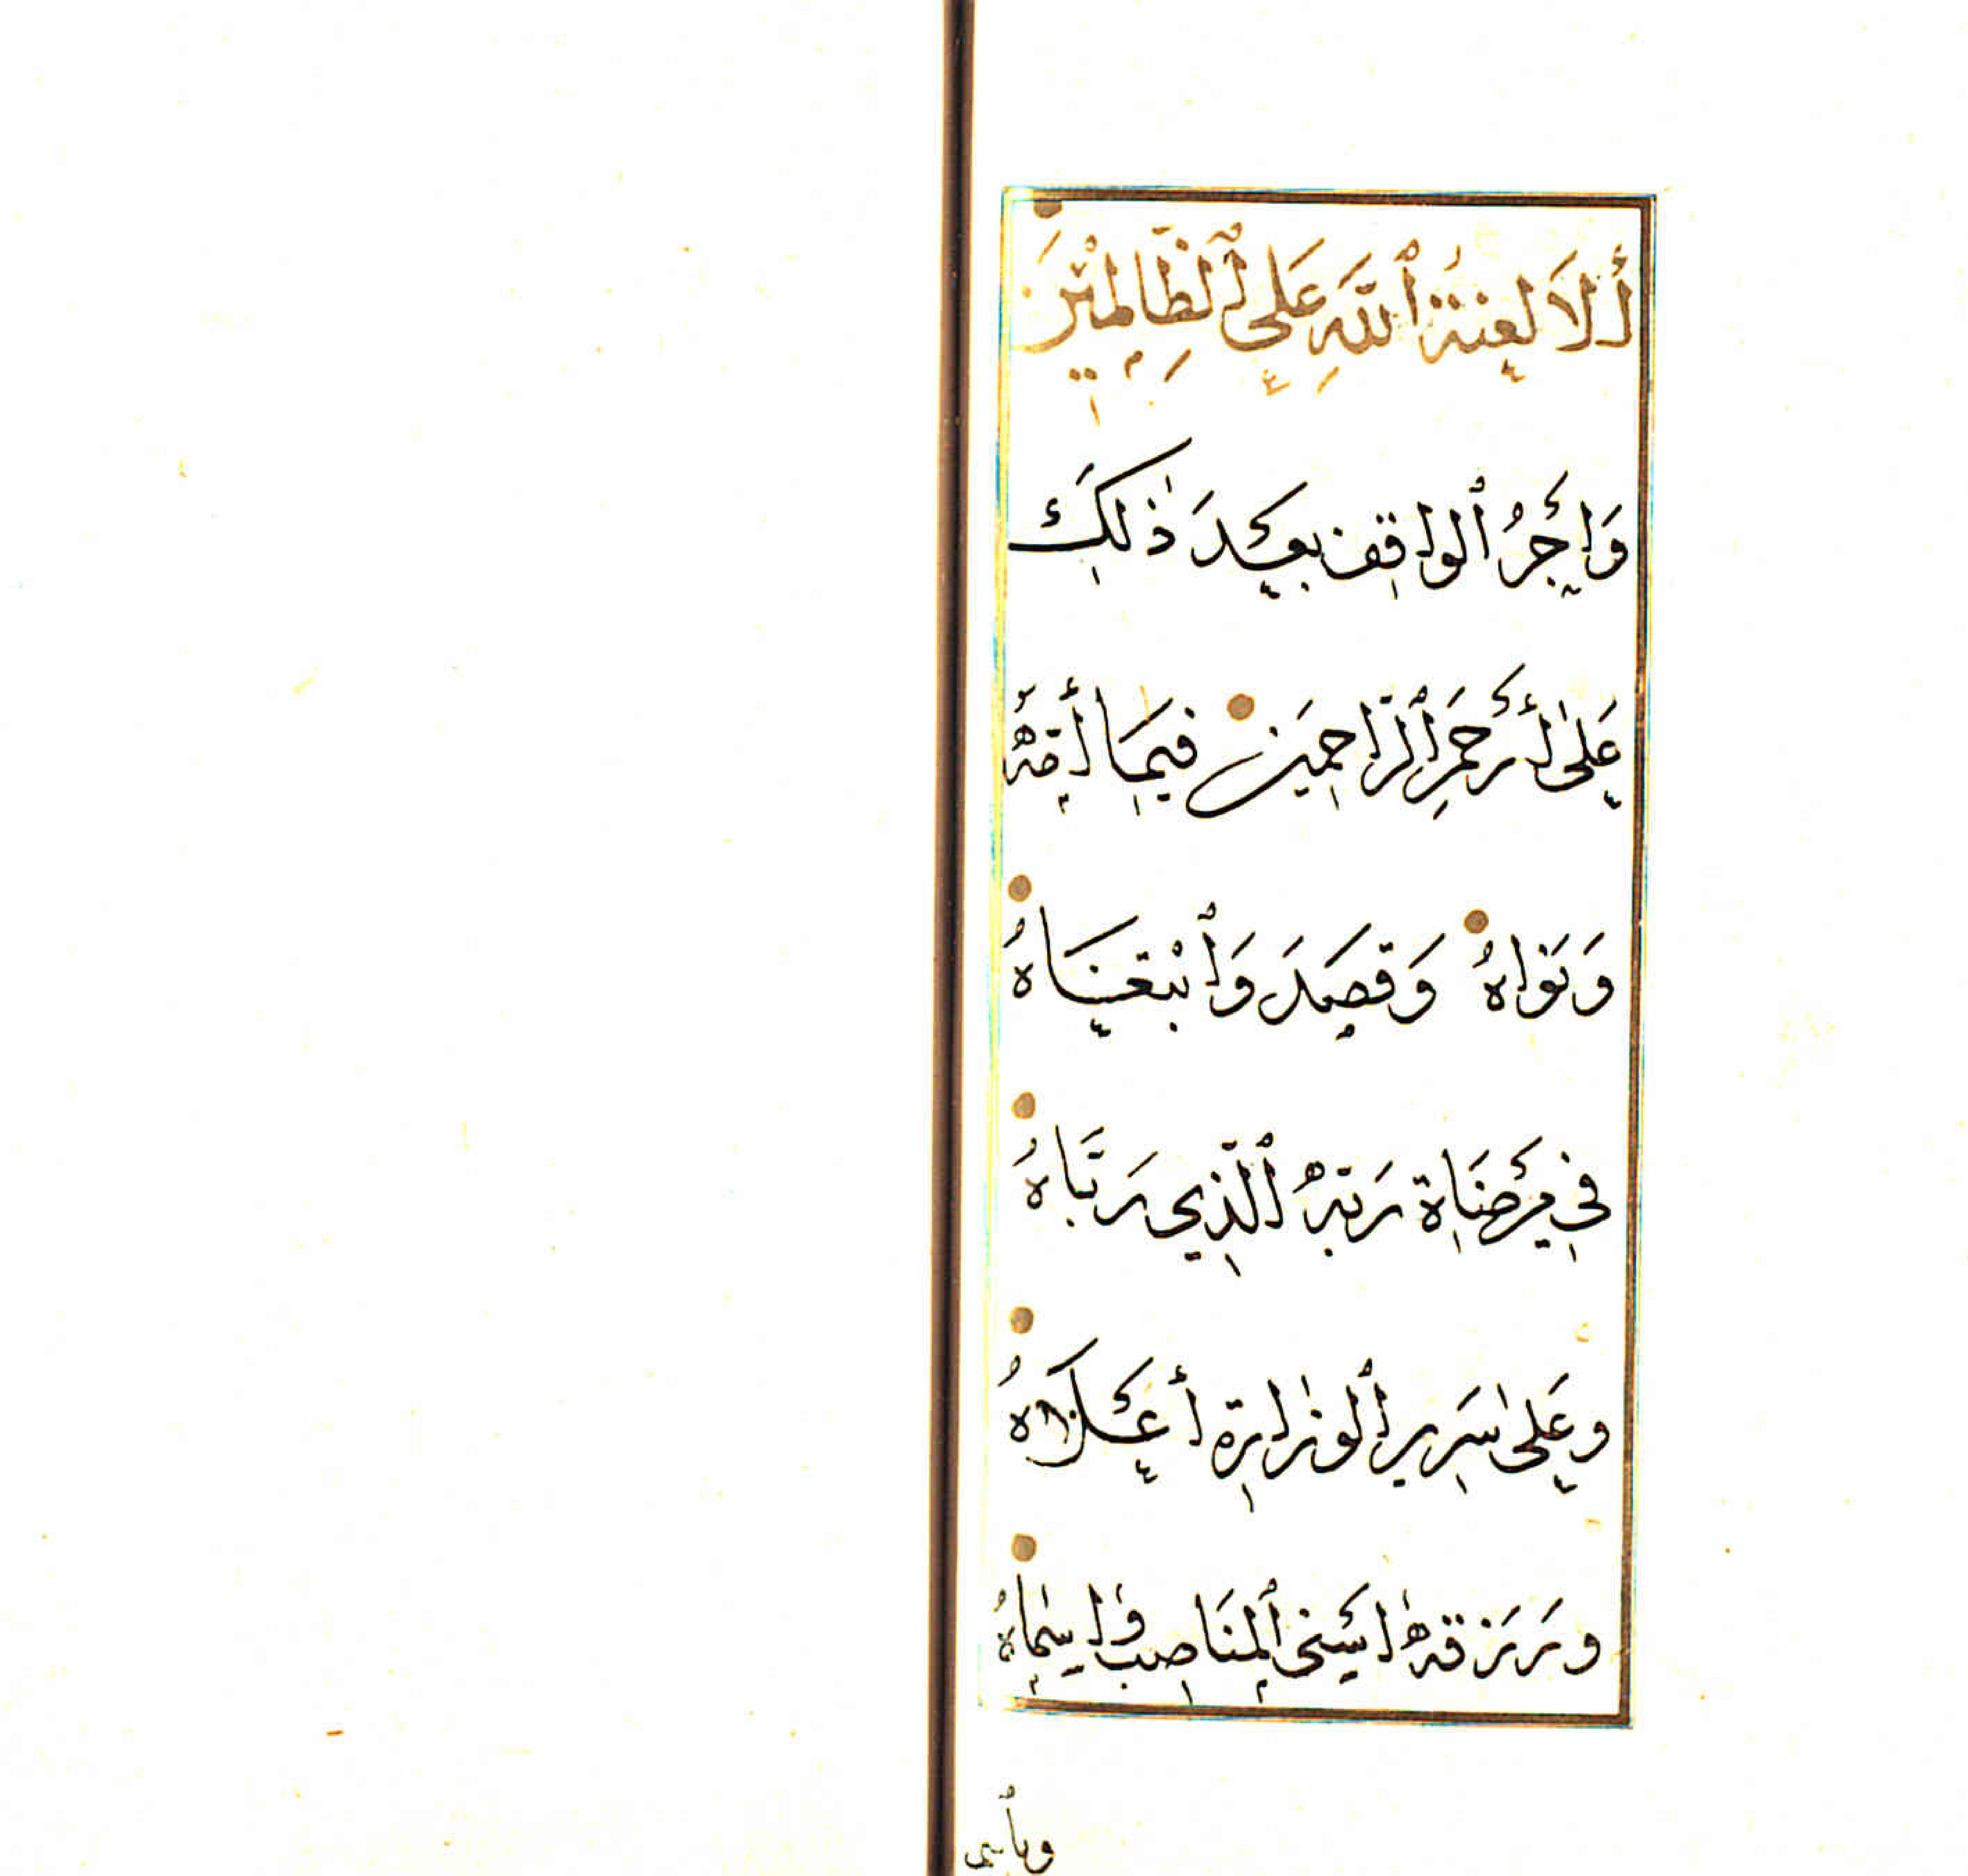 أَلَا لَعْنَةُ ٱللَّهِ عَلَى ٱلظَّالِمِيْنَ
وَأَجْرُ ٱلْوَاقِفِ بَعْدَ ذٰلِكَ
عَلٰى أَرْحَمِ ٱلرَّاحِمِيَن فِيمَا أَمَّهُ
وَنَوَاهُ وَقَصَدَ وَٱبْتِغَاهُ
فِي مَرْضَاةِ رَبِّهِ ٱلَّذِي رَبَّاهُ
وعَلىٰ سَرِيرِ ٱلوزٰارِةِ أَعْلَاهُ
ورَزَقهُ اسْنى ٱلمَنَاصِبِ واسمٰاهُ